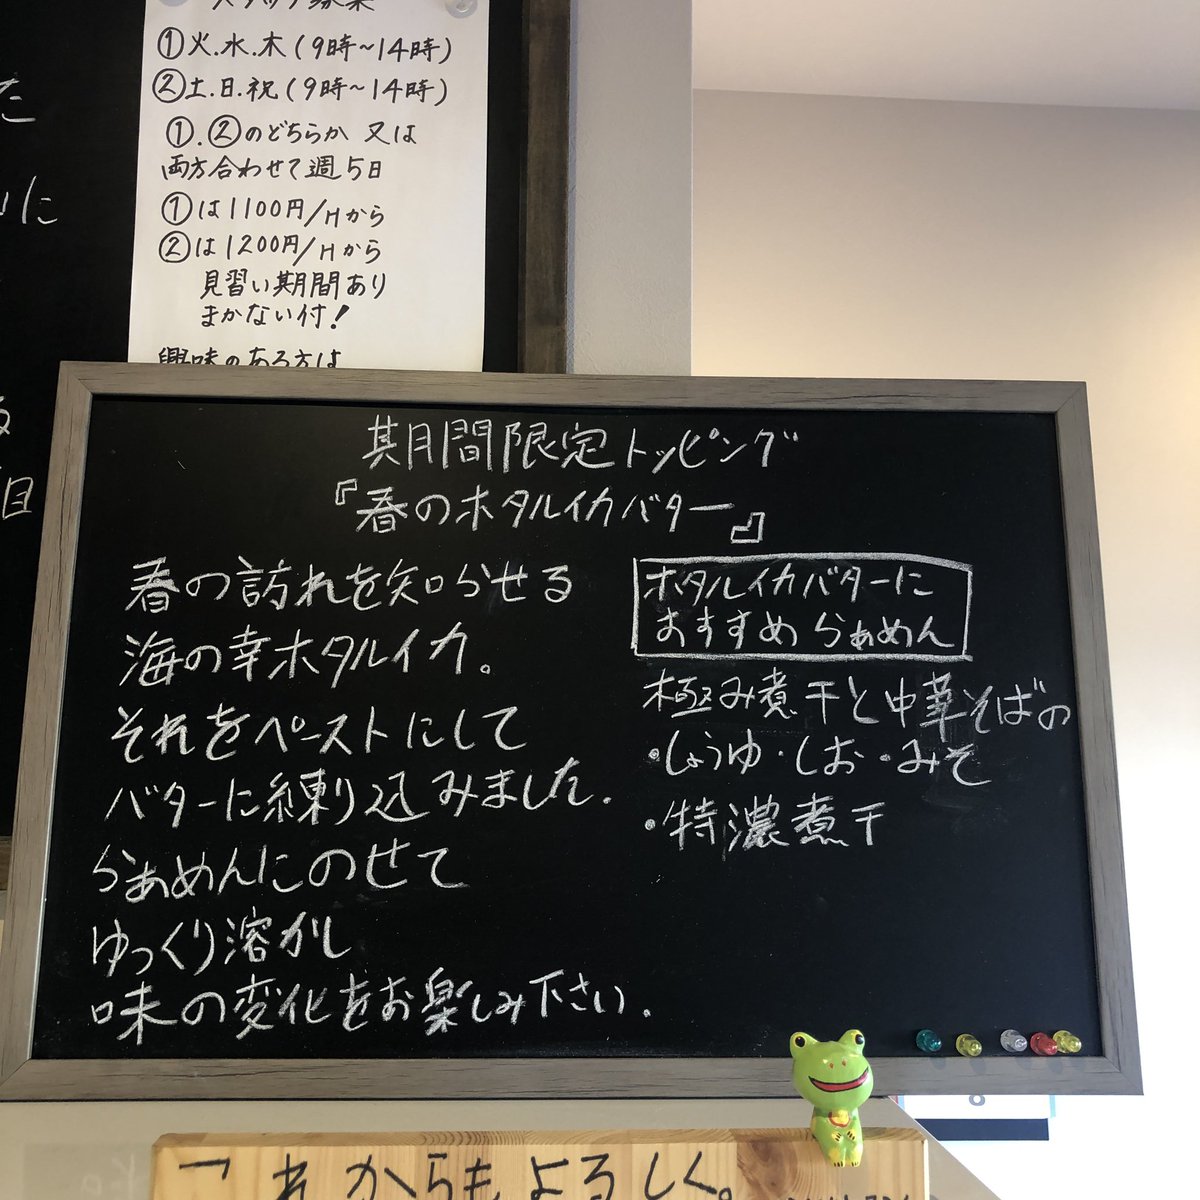 スタッフ募集
①火.水.木(9時~14時)
②土.日.祝(9時~14時)
①.②のどちらか 又は
両方合わせて週5日
①は1100円/Hから
②は1200円/Hから
見習い期間あり
まかない付!
興味のある方は
期間限定トッピング
『春のホタルイカバター』
春の訪れを知らせる
海の幸ホタルイカ。
それをペーストにして
バターに練り込みました.
らぁめんにのせて
ゆっくり溶かし
味の変化をお楽しみ下さい.
ホタルイカバターに
おすすめらぁめん
極み煮干と中華そばの
・しょうゆ・しお・みそ
・特濃煮干
これからもよろしく。